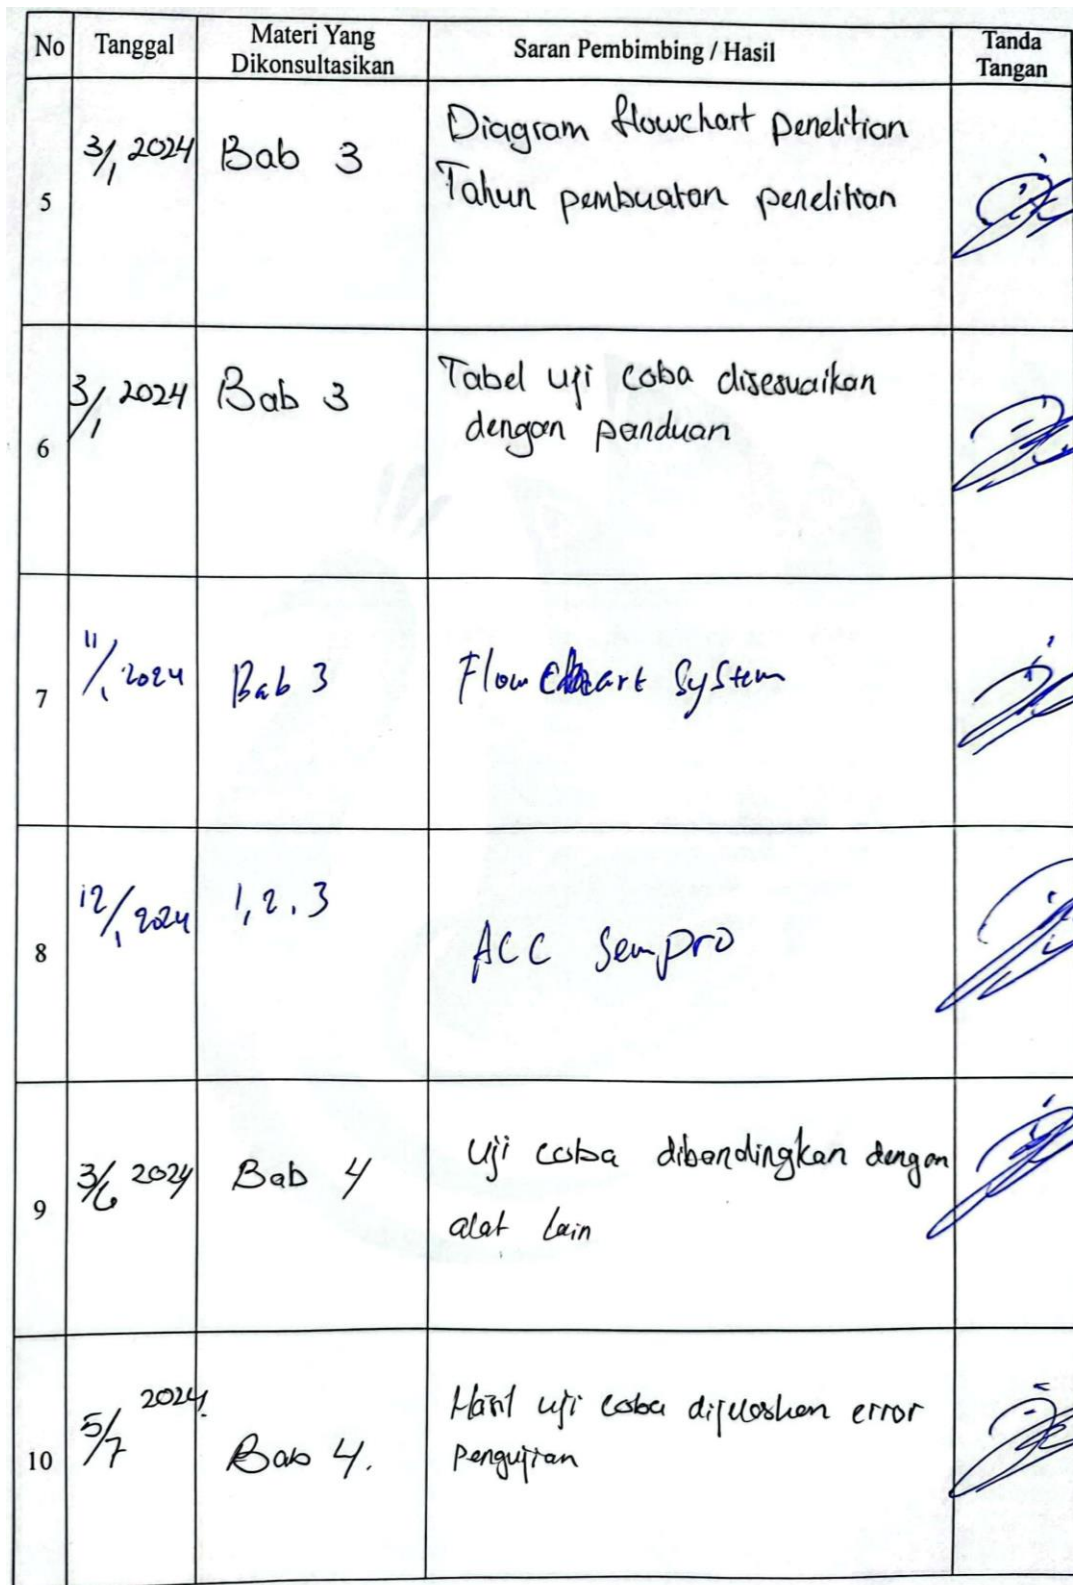 No Tanggal Materi Yang Dikonsultasikan Saran Pembimbing / Hasil Tanda Tangan
5 3/1 2024 Bab 3 Diagram flowchart penelitian
Tahun pembuatan penelitian
6 3/1 2024 Bab 3 Tabel uji coba disesuaikan
dengan panduan
7 11/1 2024 Bab 3 Flow Chart System
8 12/1 2024 1, 2, 3 ACC Sempro
9 3/6 2024 Bab 4 Uji coba dibandingkan dengan
alat lain
10 5/7 2024. Bab 4. Hasil uji coba dijelaskan error
Pengujian